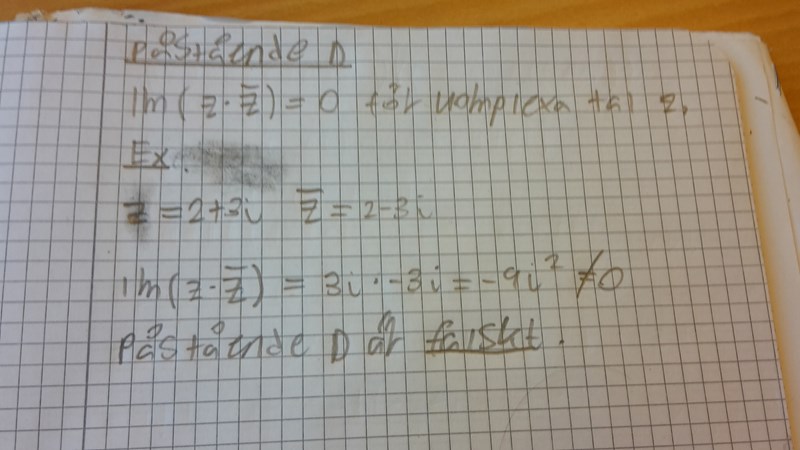 Påstående D
Im(z·z̅) = 0 för komplexa tal z.
Ex.
z = 2+3i z̅ = 2-3i
Im(z·z̅) = 3i·-3i = -9i² ≠ 0
Påstående D är falskt.